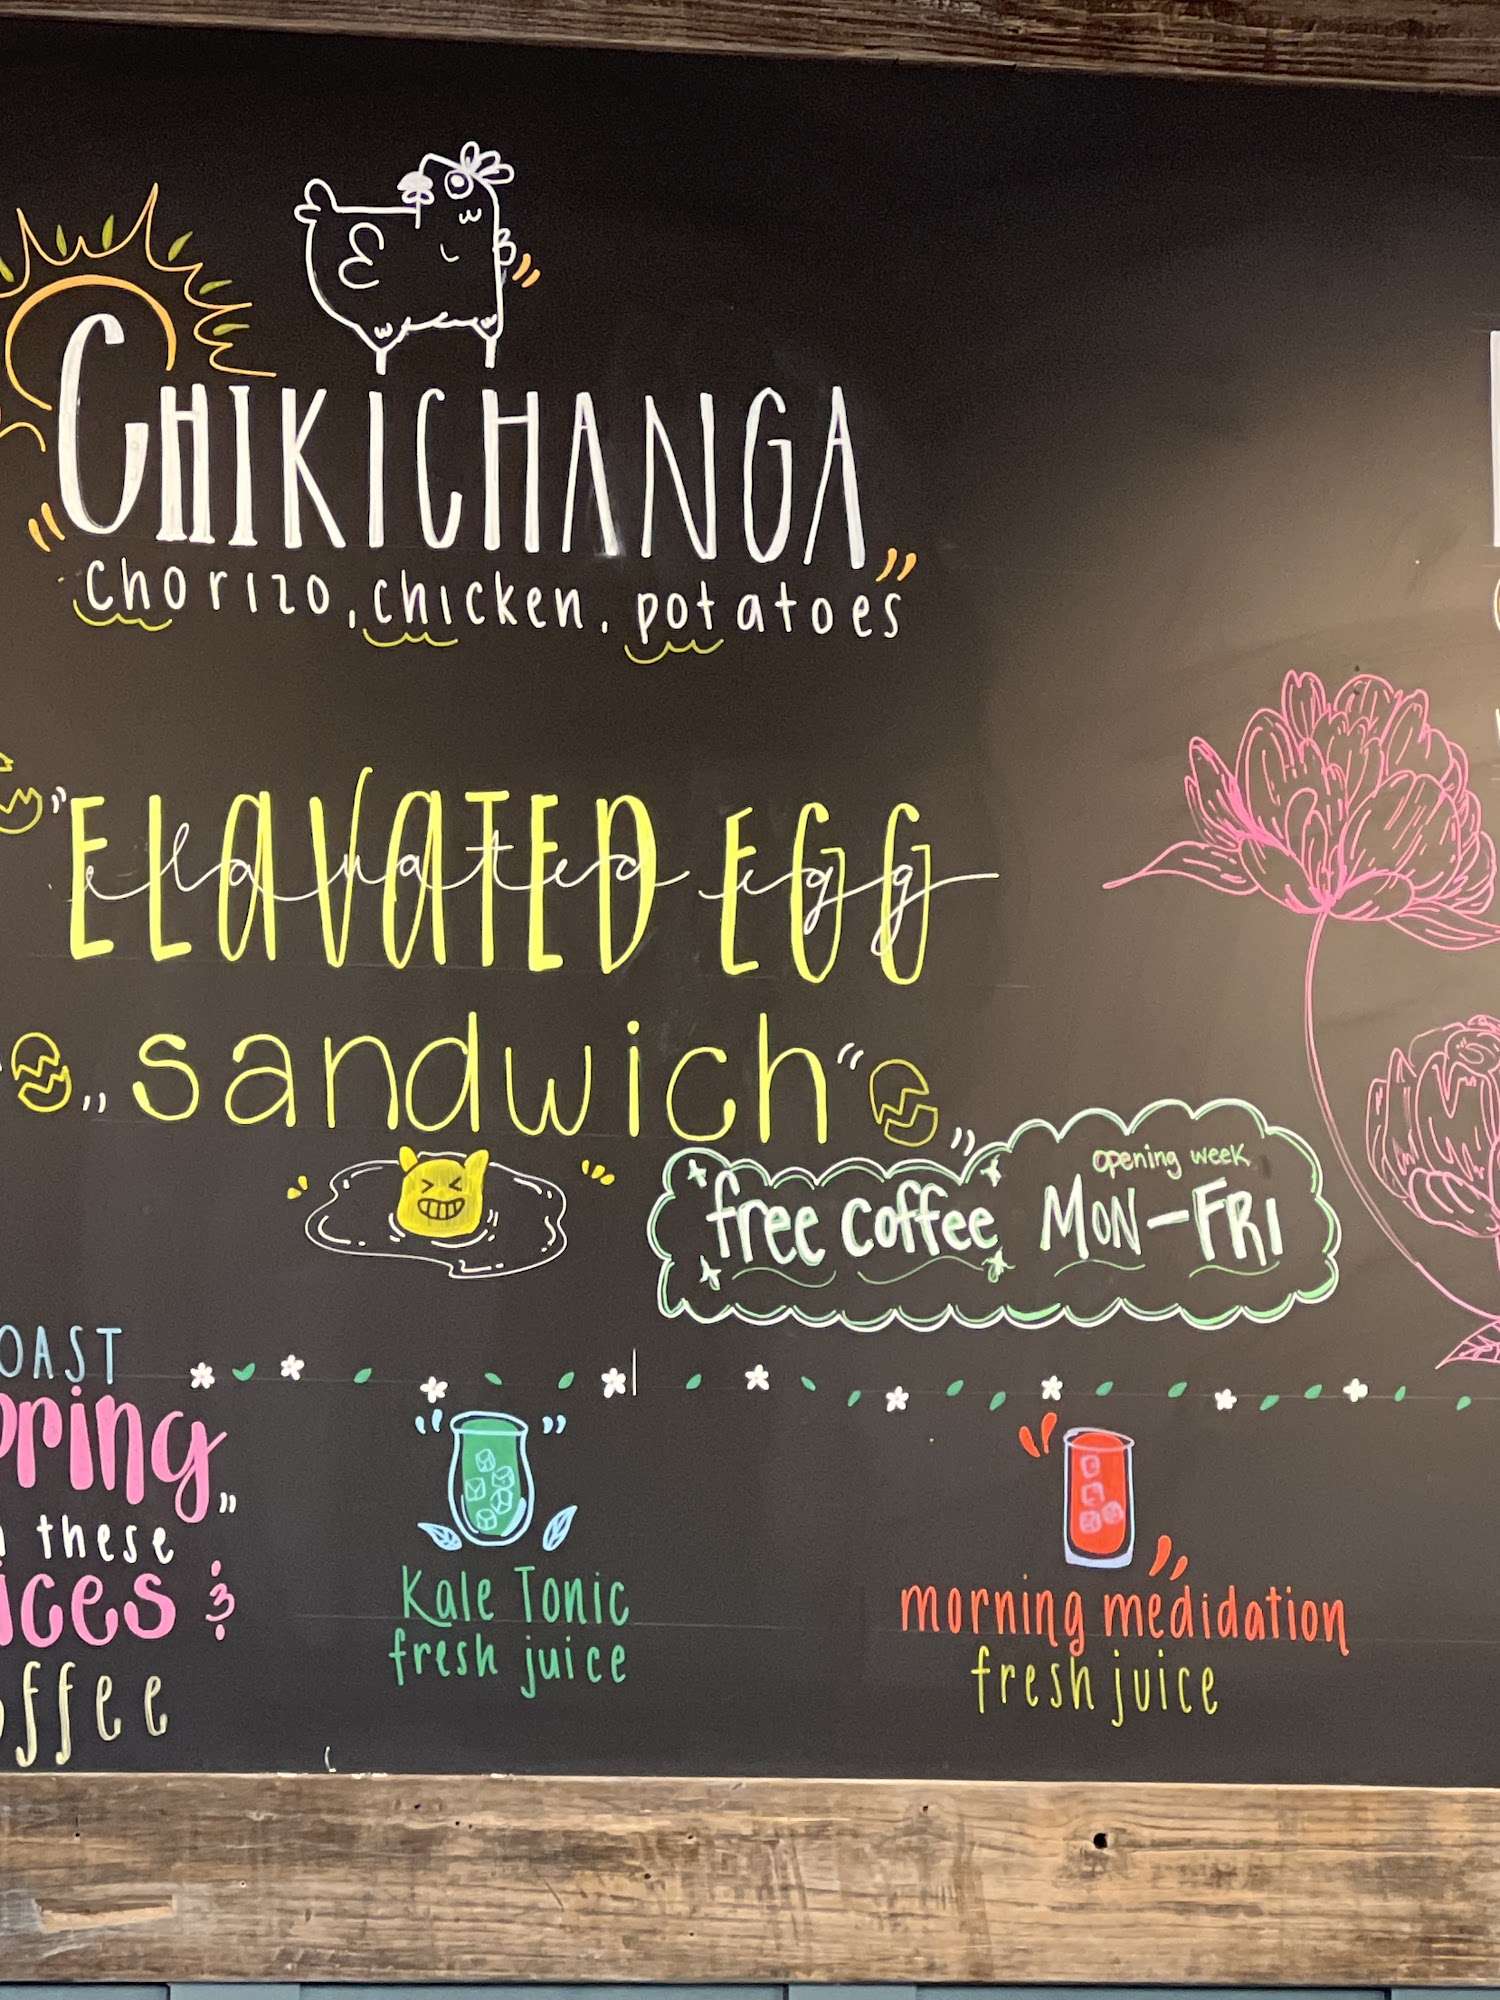 CHIKICHANGA
chorizo, chicken, potatoes
ELAVATED EGG
elavated egg
sandwich
opening week
free coffee MON-FRI
these
Kale Tonic
fresh juice
morning medidation
fresh juice